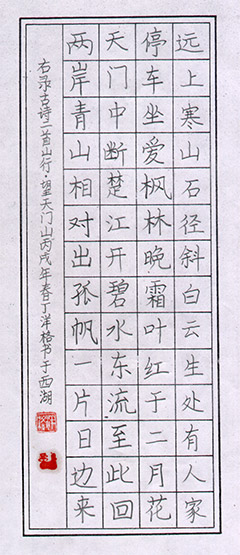 远上寒山石径斜白云生处有人家
停车坐爱枫林晚霜叶红于二月花
天门中断楚江开碧水东流至此回
两岸青山相对出孤帆一片日边来
右录古诗二首山行·望天门山丙戌年春丁洋格书于西湖